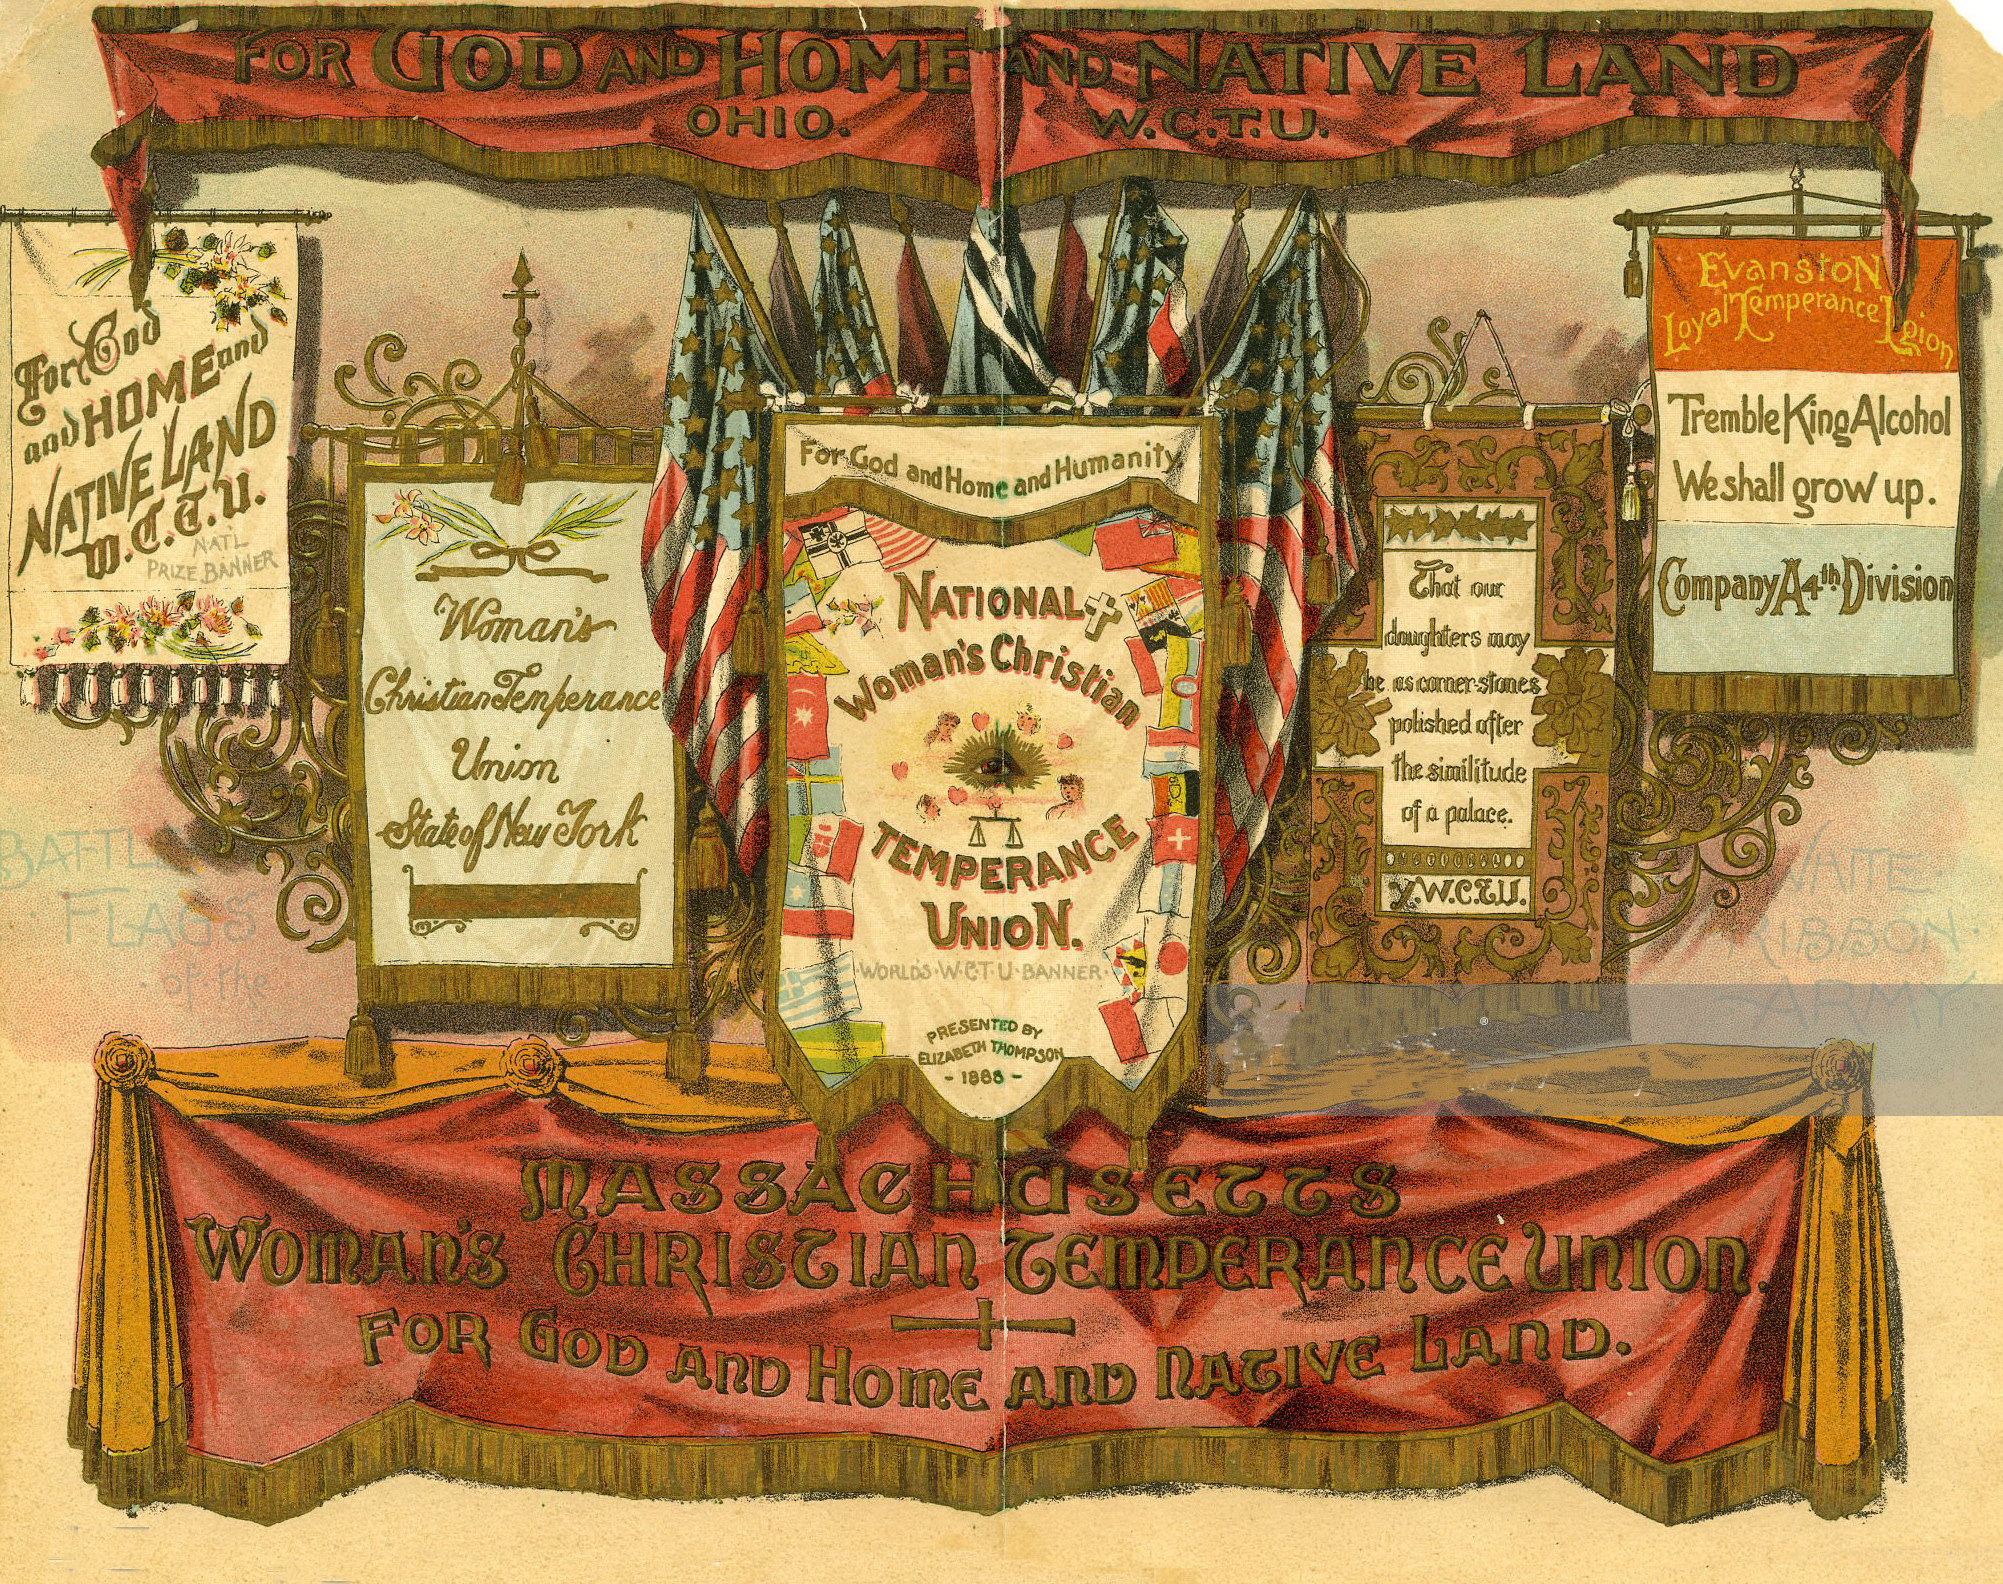 FOR GOD AND HOME AND NATIVE LAND
OHIO. W.C.T.U.
For God
and HOME and
NATIVE LAND
W.C.T.U.
NATL
PRIZE BANNER
Woman's
Christian Temperance
Union
State of New York
For God and Home and Humanity
NATIONAL
Woman's Christian
TEMPERANCE
UNION.
WORLD'S·W·C·T·U·BANNER·
PRESENTED BY
ELIZABETH THOMPSON
- 1888 -
That our
daughters may
be as corner-stones
polished after
the similitude
of a palace.
Y.W.C.T.U.
EvanstoN
Loyal Temperance Legion
Tremble King Alcohol
We shall grow up.
Company A 4th Division
BATTLE
· FLAGS
· of · the
WHITE ·
RIBBON ·
ARMY
MASSACHUSETTS
WOMAN'S CHRISTIAN TEMPERANCE UNION.
FOR GOD AND HOME AND NATIVE LAND.